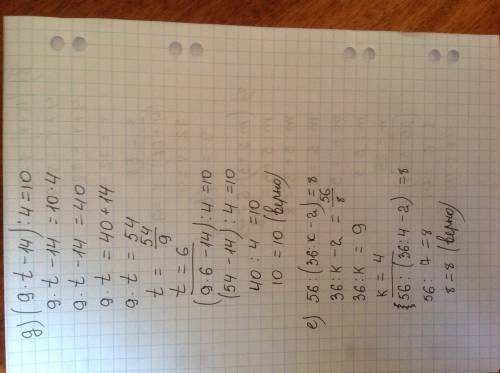 д) (9·t-14):4=10
9·t-14=10·4
9·t-14=40
9·t=40+14
9·t=54
t=54/9
t=6
(9·6-14):4=10
(54-14):4=10
40:4=10
10=10 (верно)
е) 56:(36:к-2)=8
36:к-2=56/8
36:к=9
к=4
{56:(36:4-2)=8
56:7=8
8=8 (верно)